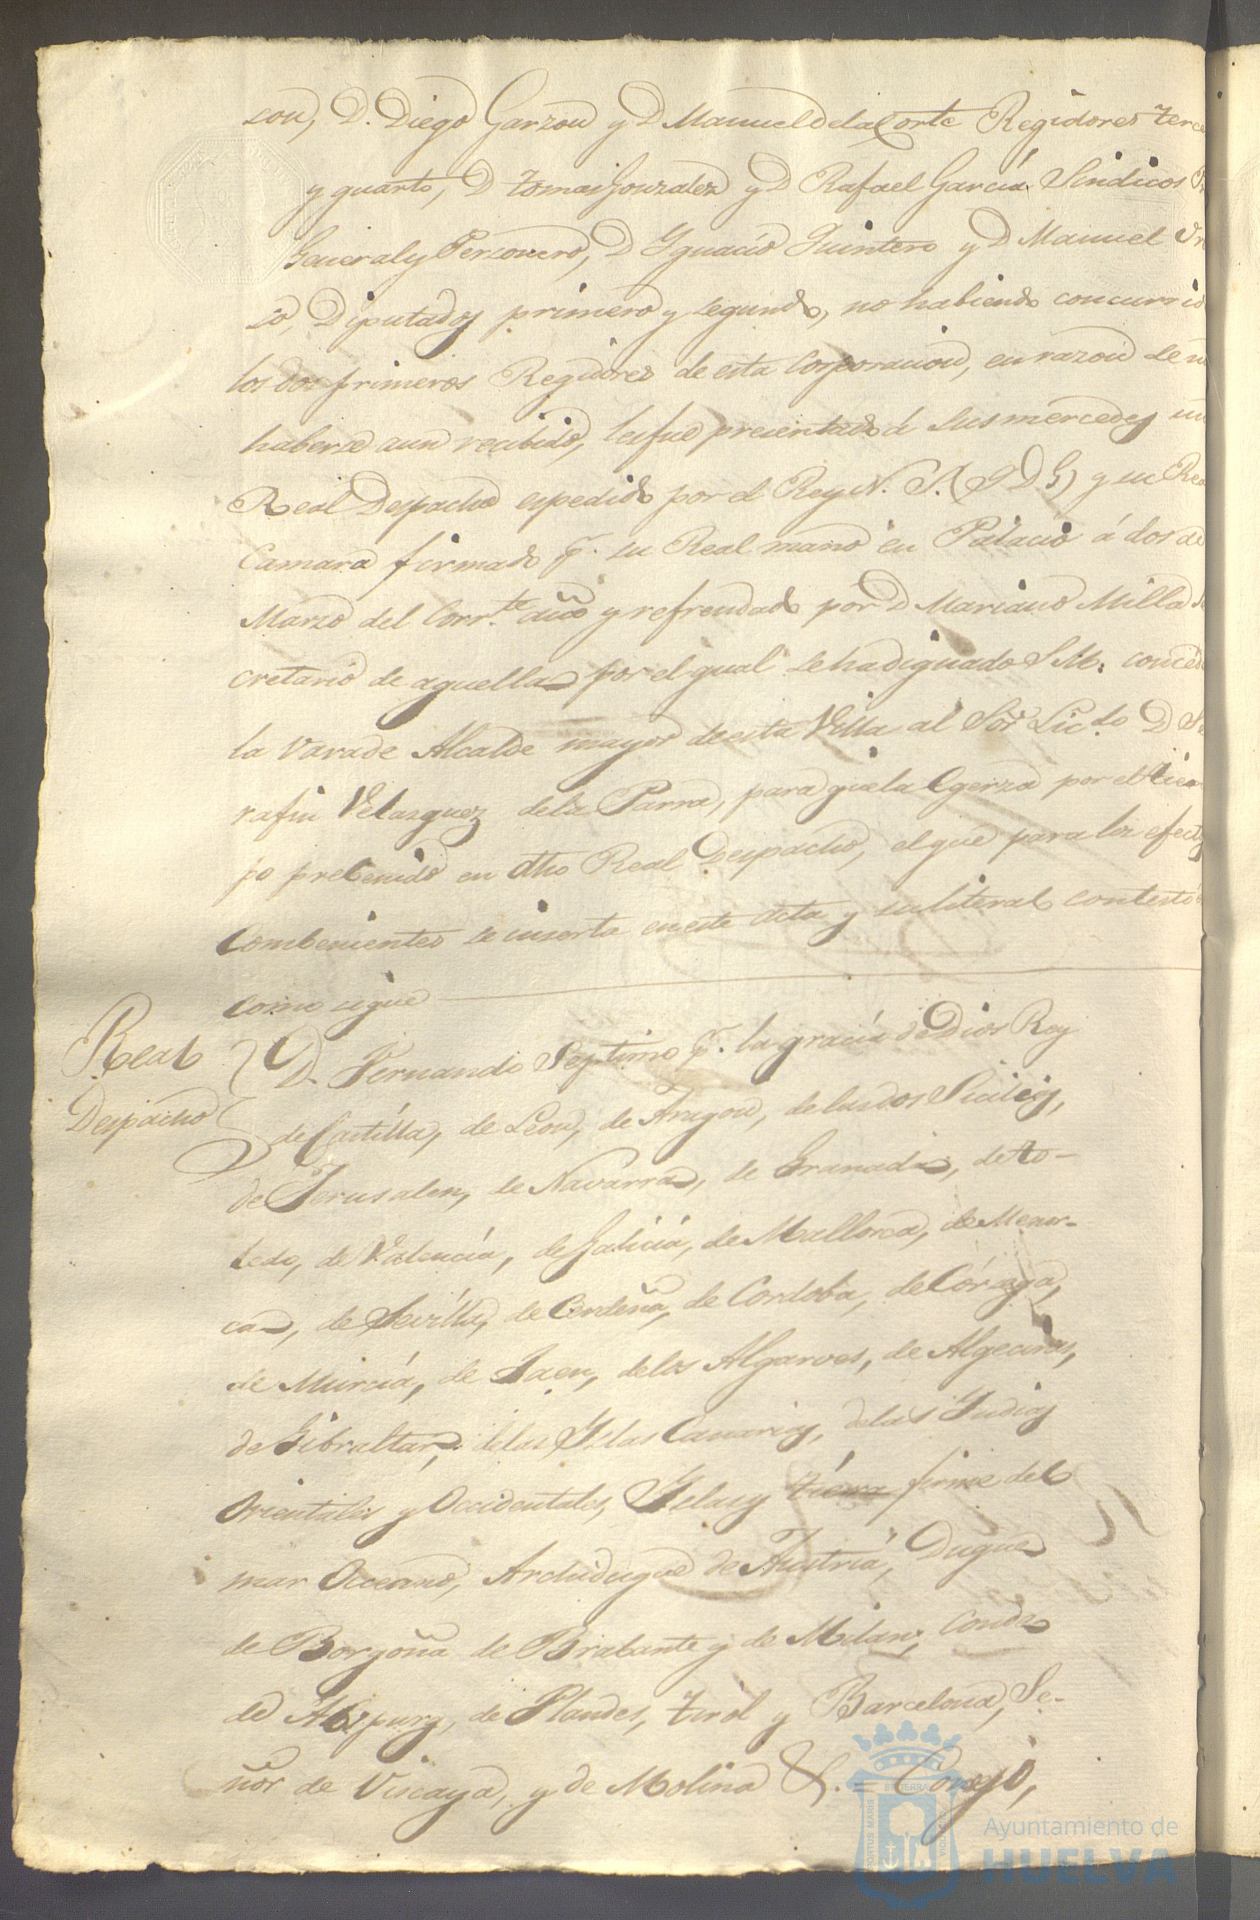 son, D. Diego Garzon y D Manuel de la Corte Regidores terce
y quarto, D tomas Gonzalez y D Rafael Garcia Sindicos
General y Personero, D Ygnacio Quintero y D Manuel
so, Diputados primero y segundo, no habiendo concurrido
los dos primeros Regidores de esta Corporacion, en razon de
haberse aun recibido, les fue presentado á sus mercedes un
Real Despacho espedido por el Rey N. S. (Q D G) y su Real
Camara firmado p.r su Real mano en Palacio á dos de
Marzo del Corr.te año y refrendado por D Mariano Milla Se
cretario de aquella por el qual se ha dignado S M. conced
la Vara de Alcalde mayor de esta Villa al Sor Lic.do D Se
rafin Velasquez de la Parra, para que la egerza por el tiem
po prebenido en dho Real Despacho, el que para los efectos
Combenientes se inserta en este acta y su literal contesto
como sigue
Real
Despacho
D. Fernando Septimo p.r la gracia de Dios Rey
de Castilla, de Leon, de Aragon, de las dos Sicilias,
de Jerusalen, de Navarra, de Granada, de to-
ledo, de Valencia, de Galicia, de Mallorca, de Menor-
ca, de Sevilla, de Cerdeña, de Cordoba, de Córzega,
de Murcia, de Jaen, de los Algarves, de Algeciras,
de Gibraltar, de las Yslas Canarias, de las Yndias
Orientales y Occidentales, Yslas y tierra firme del
mar Occeano, Archiduque de Austria, Duque
de Borgoña de Brabante y de Milan, Conde
de Abspurg, de Flandes, tirol y Barcelona, Se-
ñor de Viscaya, y de Molina &. = Consejo,
Ayuntamiento de
HUELVA